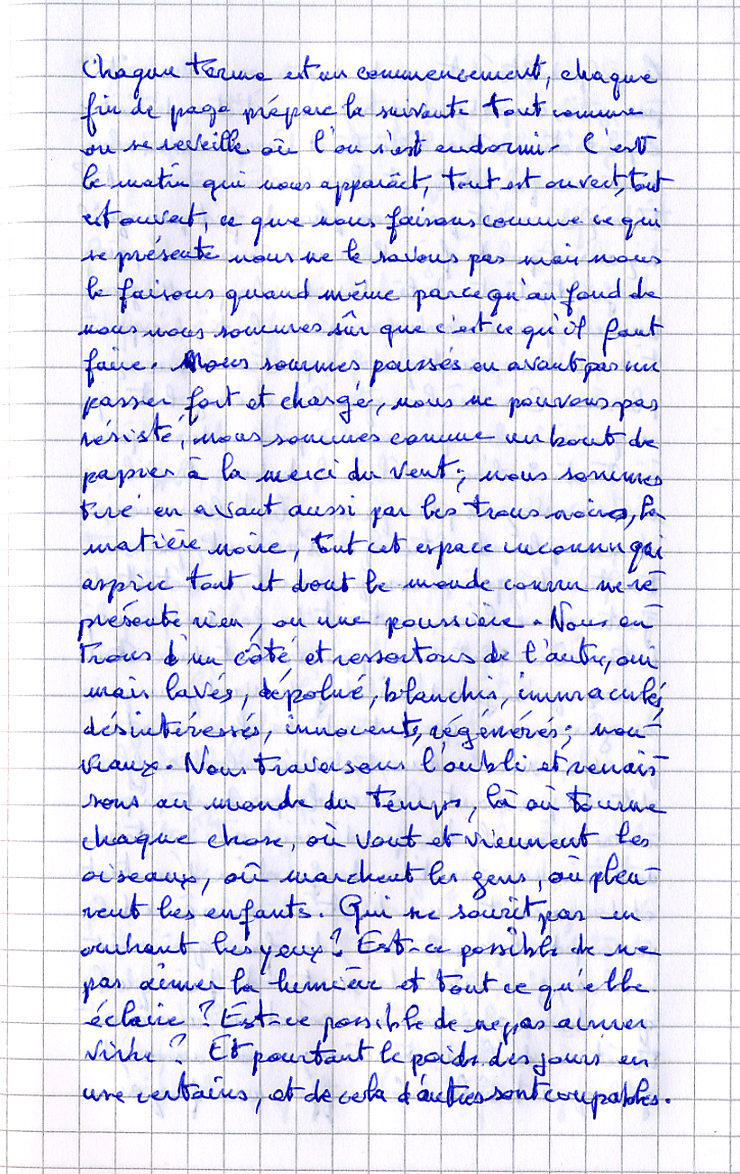 Chaque terme est un commencement, chaque
fin de page prépare la suivante tout comme
on se réveille où l'on s'est endormi. C'est
le matin qui nous apparaît, tout est ouvert, tout
est ouvert, ce que nous faisons comme ce qui
se présente nous ne le savons pas mais nous
le faisons quand même parce qu'au fond de
nous nous sommes sûr que c'est ce qu'il faut
faire. Nous sommes poussés en avant par un
passer fort et chargé, nous ne pouvons pas
résisté, nous sommes comme un bout de
papier à la merci du vent ; nous sommes
tiré en avant aussi par les trous noirs, la
matière noire, tout cet espace inconnu qui
aspire tout et dont le monde connu ne re-
présente rien, ou une poussière. Nous en-
trons d'un côté et ressortons de l'autre, oui
mais lavés, dépolué, blanchis, immaculés,
désintéressés, innocents, régénérés ; nou-
veaux. Nous traversons l'oubli et renais-
sons au monde du temps, là où tourne
chaque chose, où vont et viennent les
oiseaux, où marchent les gens, où pleu-
rent les enfants. Qui ne sourit pas en
ouvrant les yeux ? Est-ce possible de ne
pas aimer la lumière et tout ce qu'elle
éclaire ? Est-ce possible de ne pas aimer
vivre ? Et pourtant le poids des jours en
use certains, et de cela d'autres sont coupables.